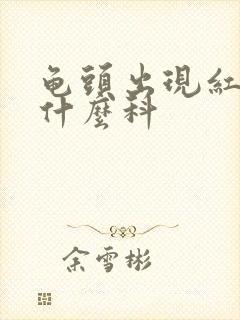 龟頭出現紅
什麼科
余雪彬